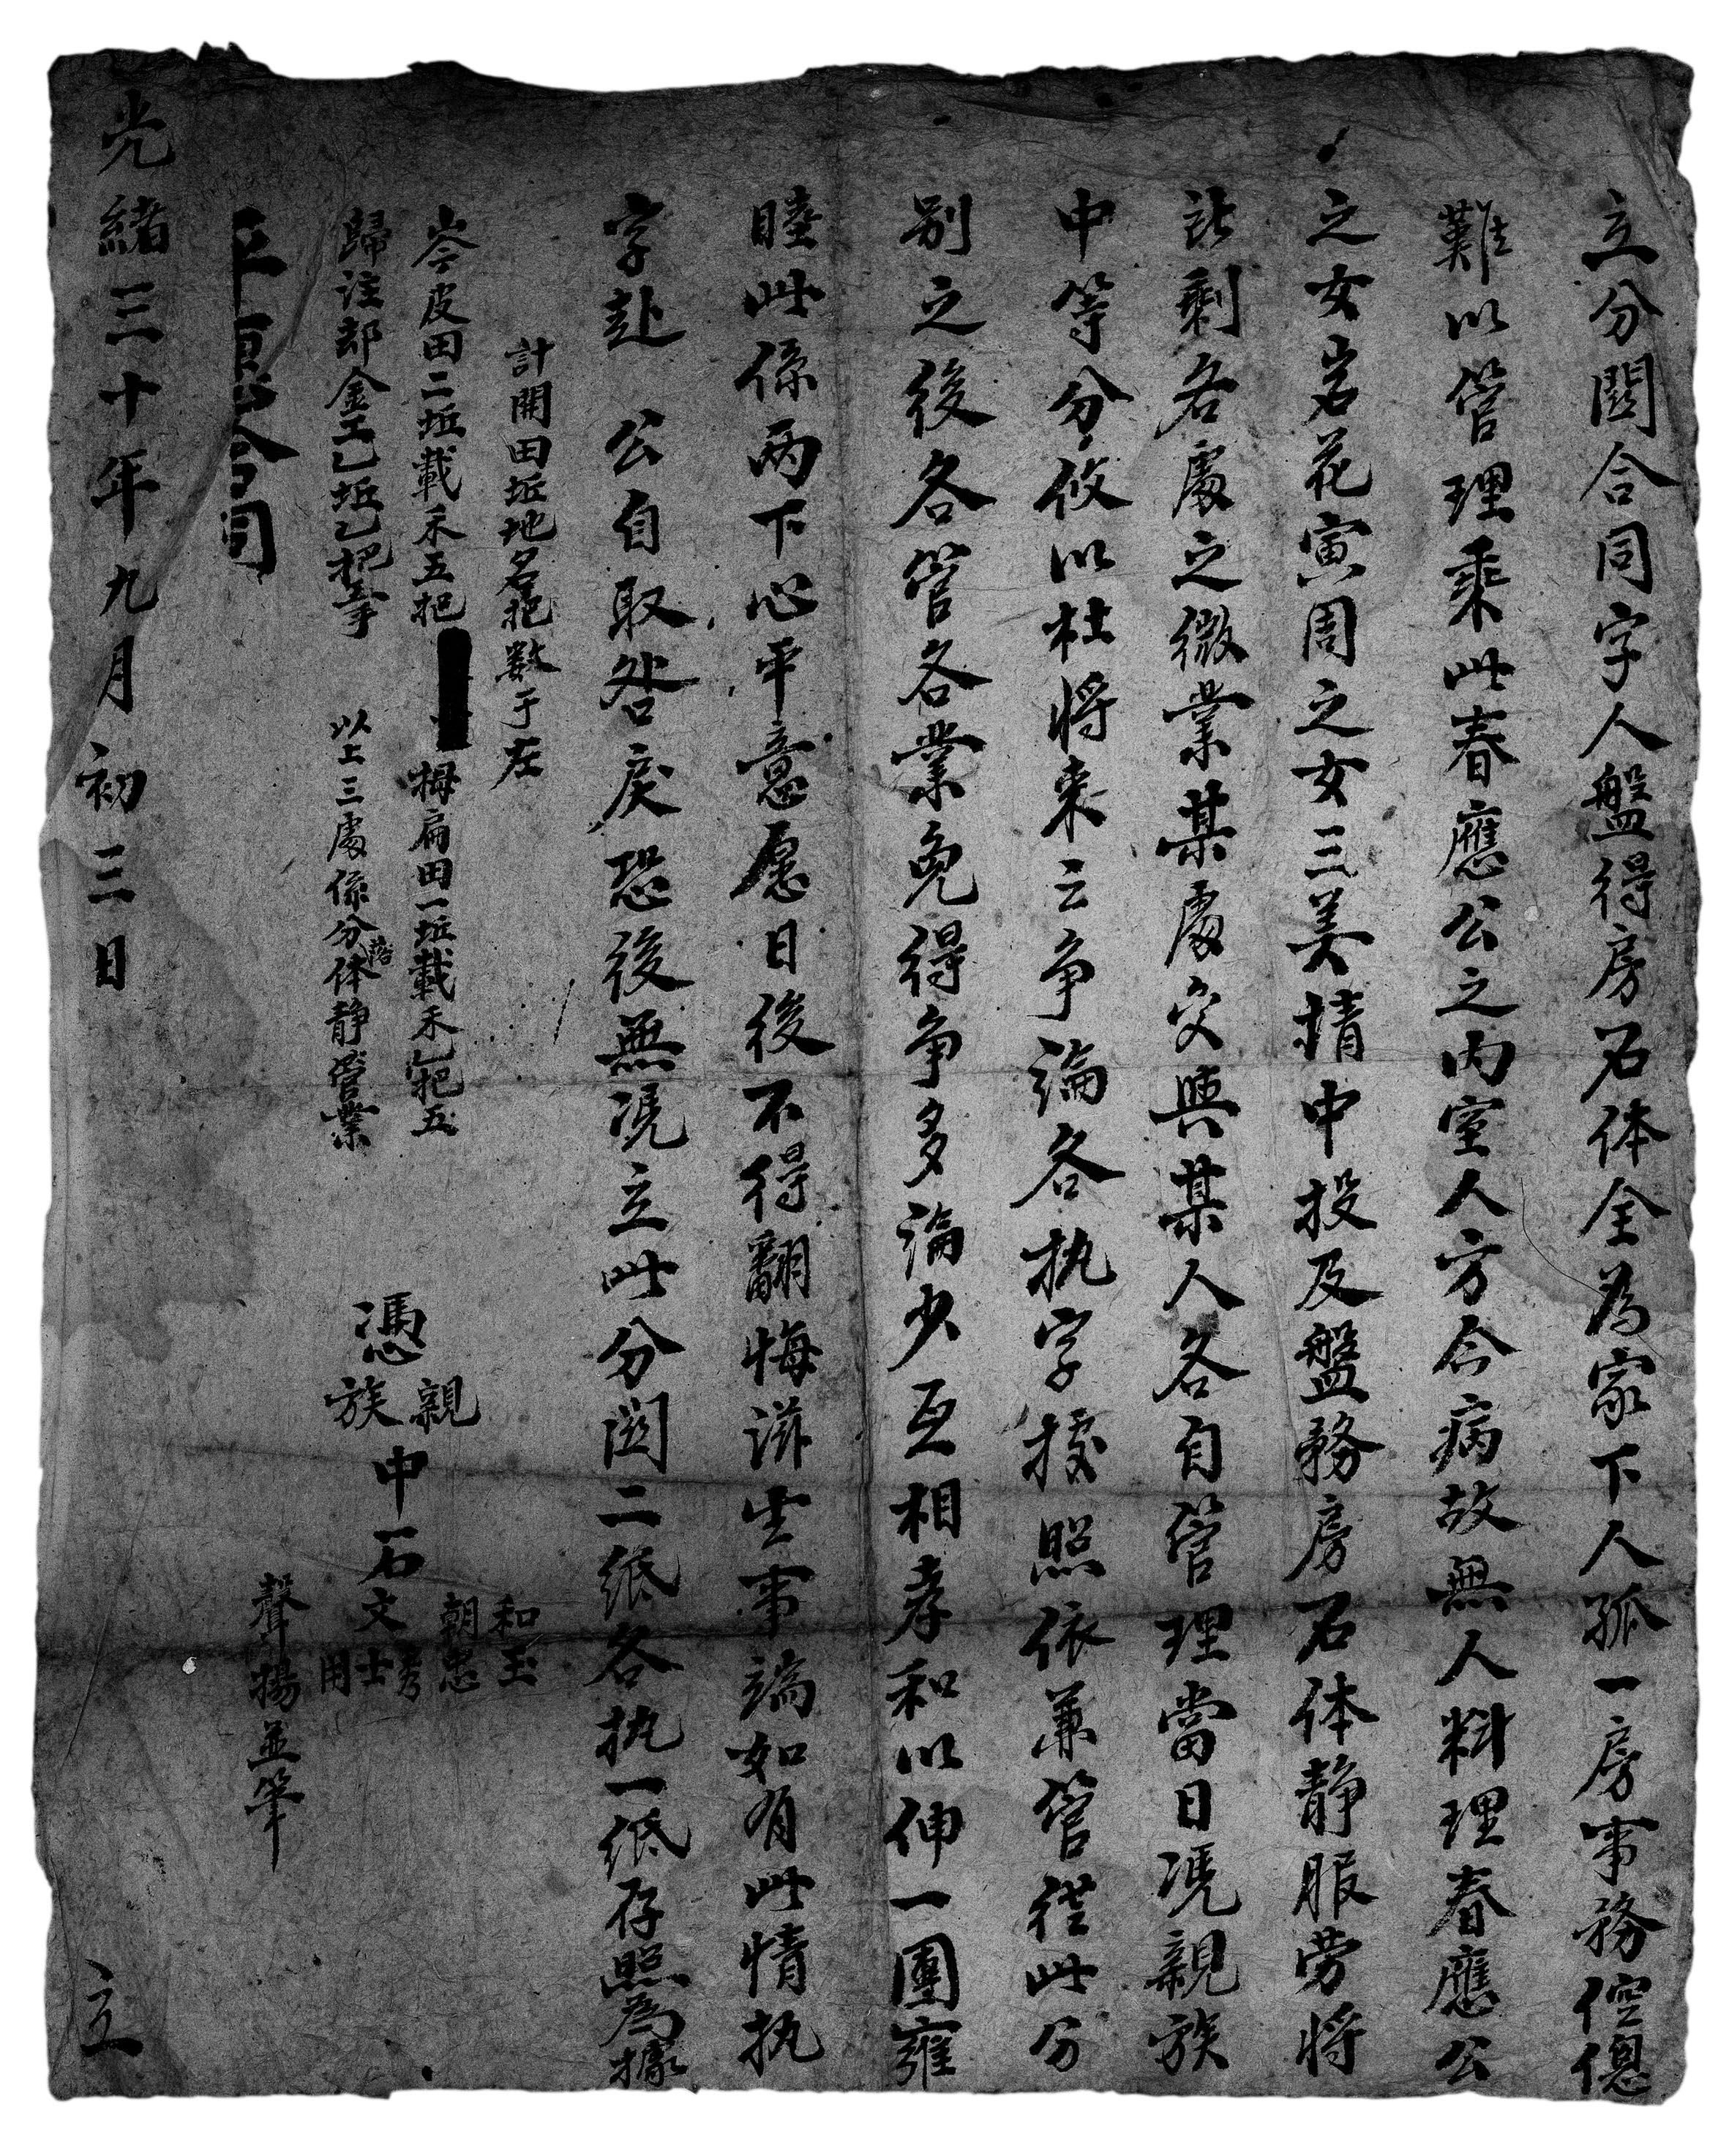 立分関合同字人盤得房石体全為家下人孤一房事務倥傯
難以管理乘此春應公之内室人方合病故無人料理春應公
之女岩花寅周之女三美請中投及盤務房石体静服劳将
訴剩各處之微業某處交與某人各自管理當日憑親族
中等分攸以杜将来云争論各执字據照依兼管從此分
别之後各管各業免得争多論少互相孝和以伸一團雍
睦此係两下心平意愿日後不得翻悔滋生事端如有此情执
字赴 公自取咎戾恐後無憑立此分関二纸各执一纸存照為據
計開田坵地名把數于左
岺皮田二坵載禾五把 拇扁田一坵載禾乙把五
歸注却金工乙坵乙把零 以上三處係分落体静管業
憑親族中石文
和玉
朝忠
秀
士
用
聲揚並筆
合同
光緒三十年九月初三日 立